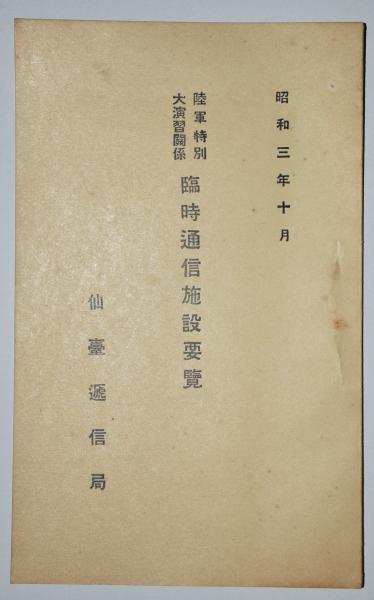 昭和三年十月
陸軍特別
大演習關係
臨時通信施設要覽
仙臺遞信局